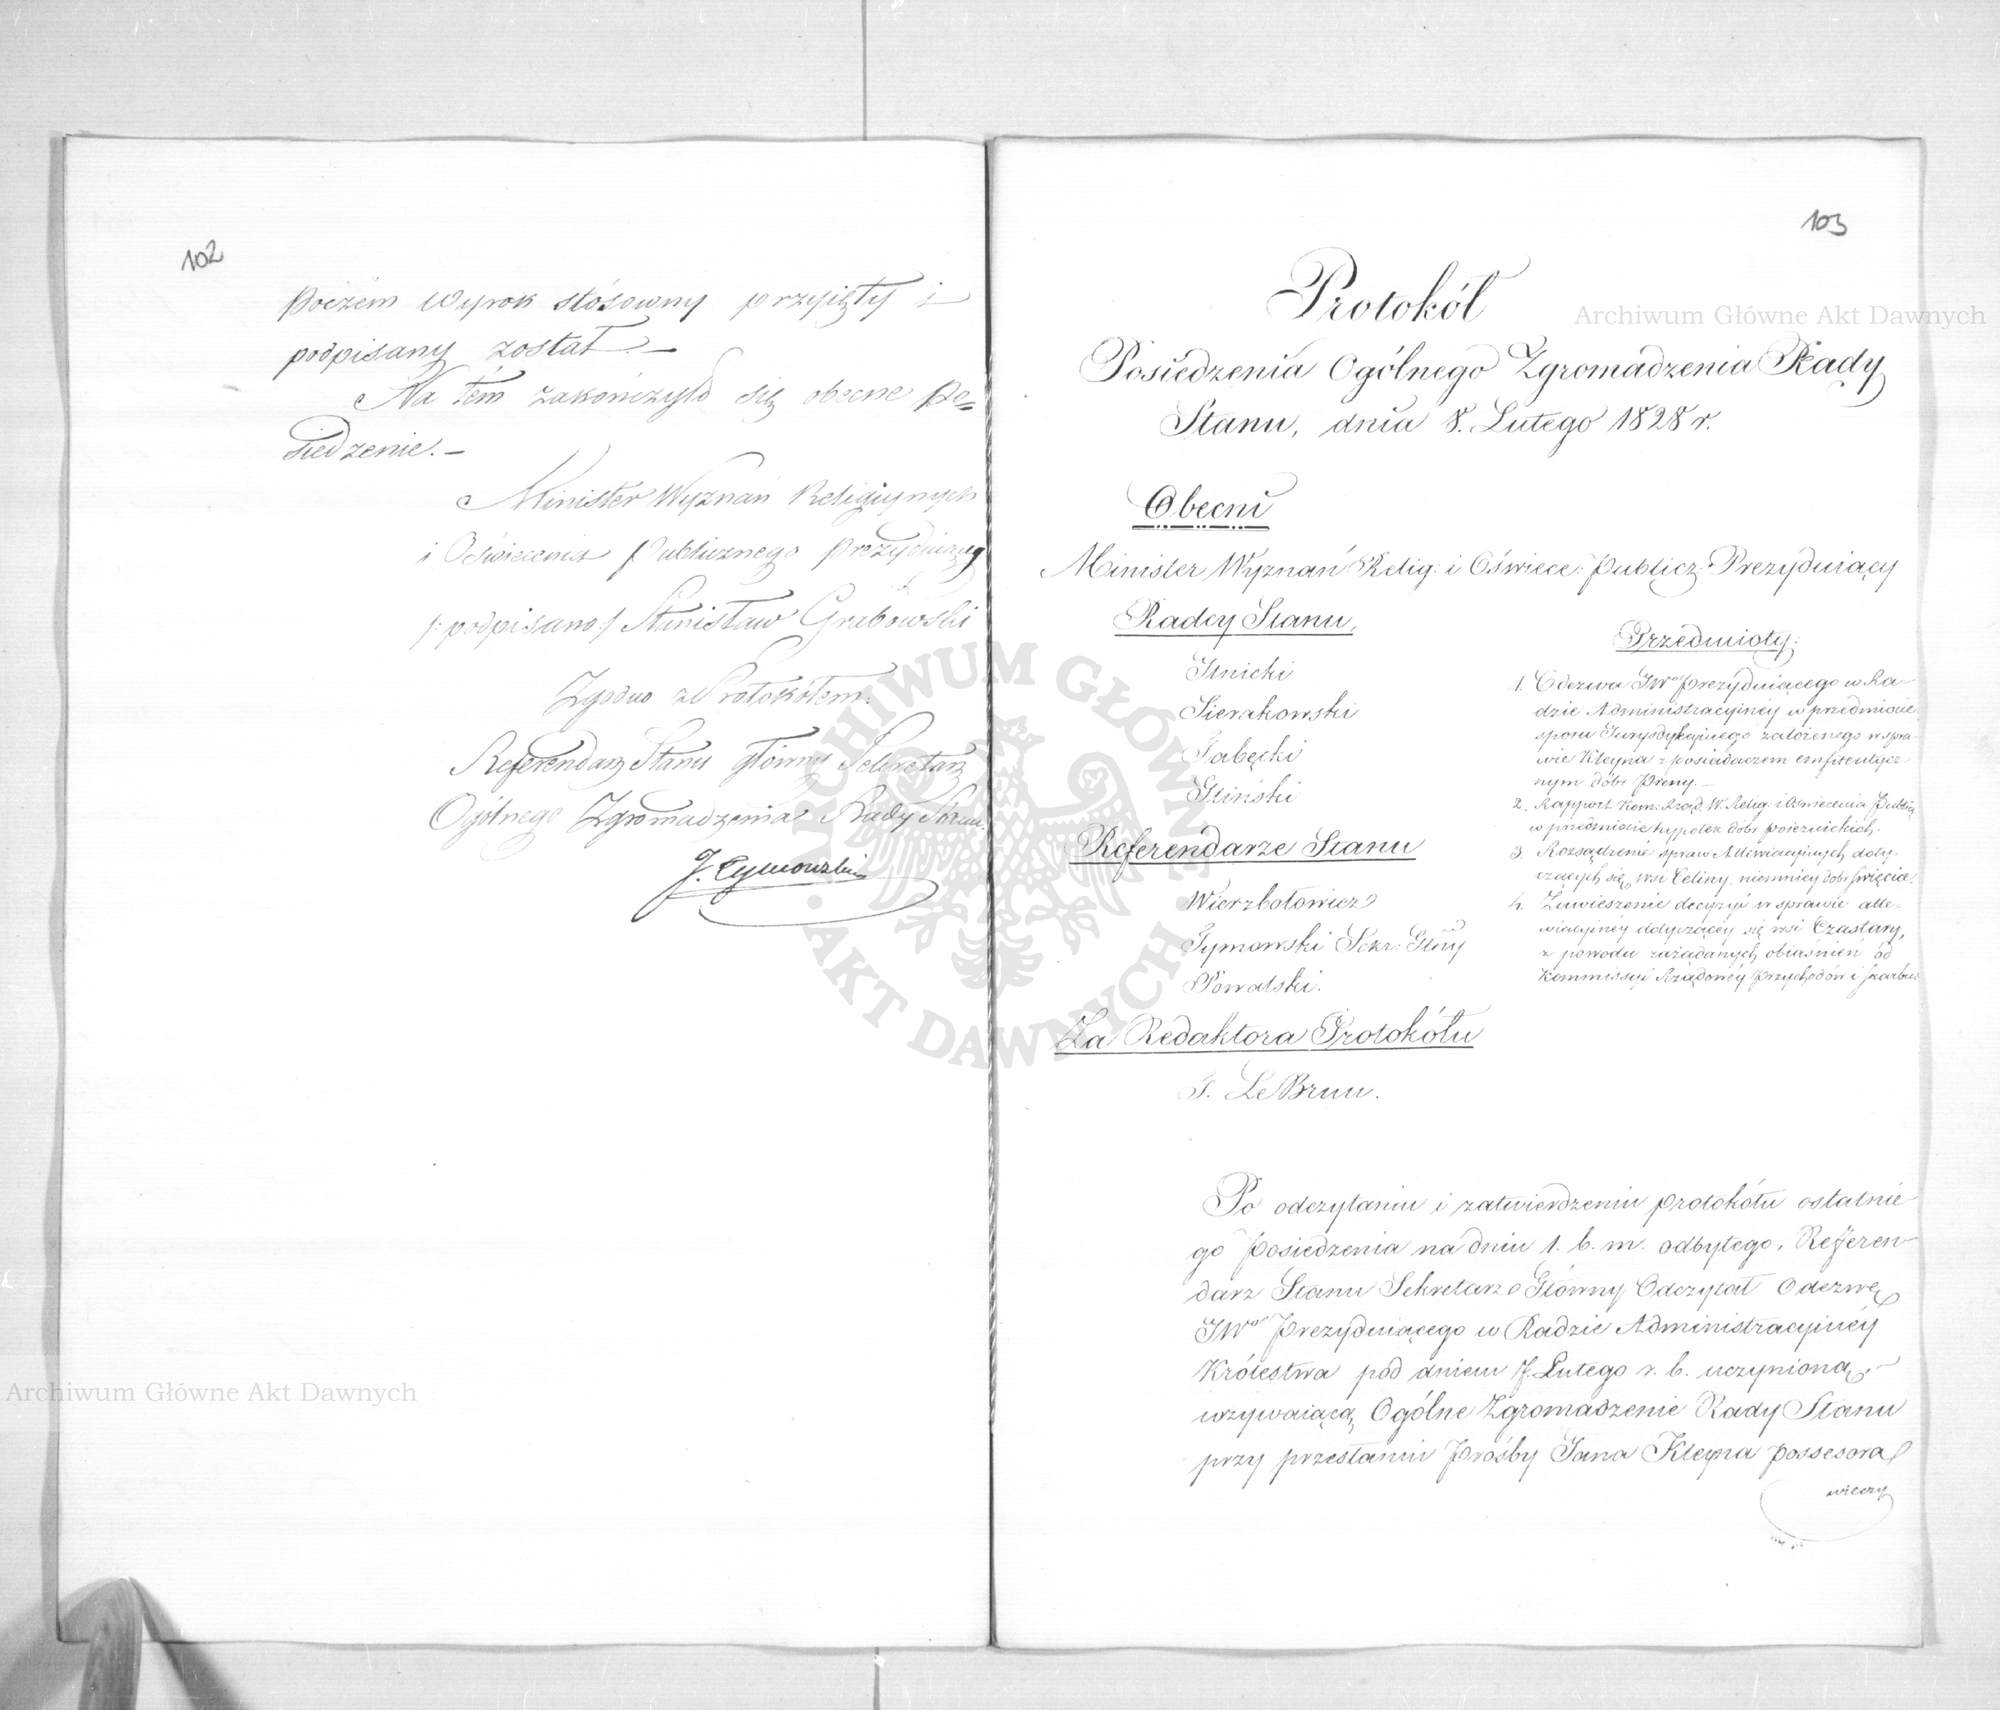 102
poczém wyrok stósowny przyięty i
podpisany został. —
Na tém zakończyło się obecne po=
siedzenie. —
Minister Wyznań Religiynych
i Oświecenia Publicznego Prezyduiący
/: podpisano :/ Stanisław Grabowski
Zgodno z Protokółem.
Referendarz Stanu Główny Sekretarz
Ogólnego Zgromadzenia Rady Stanu.
J. Tymowski
103
Protokół
Posiedzenia Ogólnego Zgromadzenia Rady
Stanu, dnia 8. Lutego 1828 r.
Obecni
Minister Wyznań Relig: i Oświece: Publicz: Prezyduiący
Radcy Stanu,
Sierakowski
Gliński
Referendarze Stanu
Wierzbołowicz
Tymowski Sekr: Głny
Powalski.
Za Redaktora Protokółu
J. Le Brun.
Przedmioty:
1. Odezwa JWo Prezyduiącego w Ra-
dzie Administracyiney w przedmiocie
sporu Jurysdykcyinego założonego w spra-
wie Kleyna z posiadaczem emfiteutycz-
nym dóbr Preny. —
2. Rapport Kom: Rząd: W. Relig: i Oświecenia Public:
w przedmiocie hypotek dóbr
3. Rozsądzenie spraw Allewiacyinych doty-
czących się wsi Celiny, niemniey dóbr Święcice.
4. Zawieszenie decyzyi w sprawie alle-
wiacyiney dotyczącey się wsi Czastary,
z powodu zażądanych obiaśnień od
Kommissyi Rządowéy Przychodów i Skarbu.
Po odczytaniu i zatwierdzeniu protokółu ostatnie
go posiedzenia na dniu 1. b. m. odbytego, Referen
darz Stanu Sekretarz Główny Odczytał Odezwę
JWo Prezyduiącego w Radzie Administracyinéy
Królestwa pod dniem 7. Lutego r. b. uczynioną, —
wzywaiącą Ogólne Zgromadzenie Rady Stanu
przy przesłaniu Prośby Jana Kleyna possesora
wieczy
Archiwum Główne Akt Dawnych
Archiwum Główne Akt Dawnych
ARCHIWUM GŁÓWNE
AKT DAWNYCH